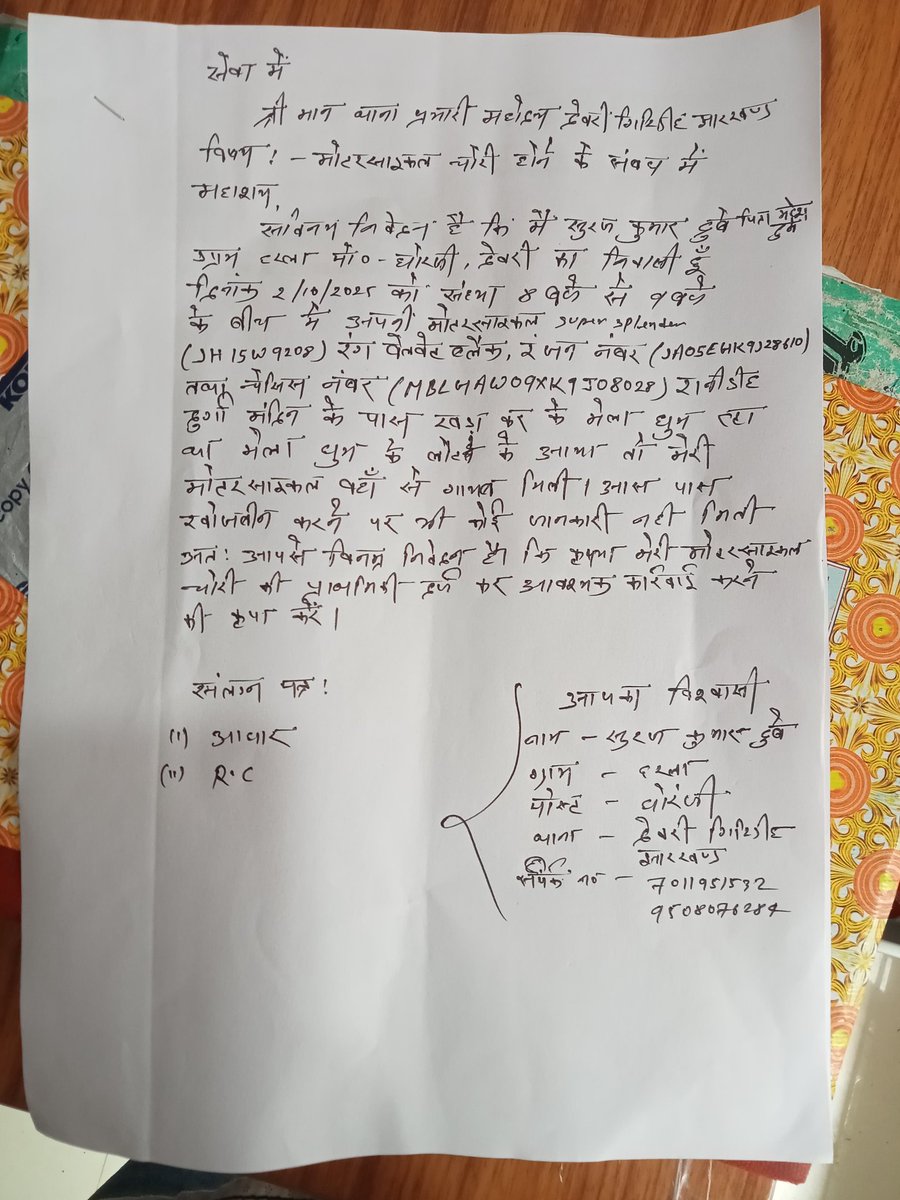 सेवा में
श्री मान थाना प्रभारी महोदय देवरी गिरिडीह झारखण्ड
विषय :- मोटरसाइकल चोरी होने के संबंध में
महाशय,
सविनय निवेदन है कि मैं सुरज कुमार दुबे पिता महेश दुबे
ग्राम दरला पो०- घोरंजी, देवरी का निवासी हूँ
दिनांक 2/10/2025 को संध्या 8 बजे से 9 बजे
के बीच में अपनी मोटरसाइकल super splender
(JH15W9208) रंग वेलवेट ब्लैक, इंजन नंबर (JA05EHK9J28610)
तथा चेचिस नंबर (MBLHAW09XK9J08028) रानीडीह
दुर्गा मंदिर के पास खड़ा कर के मेला घुम रहा
था मेला घुम के लौट के आया तो मेरी
मोटरसाइकल वहाँ से गायब मिली। आस पास
खोजबीन करने पर भी कोई जानकारी नही मिली
अतः आपसे विनम्र निवेदन है। कि कृपया मेरी मोटरसाइकल
चोरी की प्राथमिकी दर्ज कर आवश्यक कार्रवाई करने
की कृपा करें।
संलग्न पत्र :
(i) आधार
(ii) R.C
आपका विश्वासी
नाम - सुरज कुमार दुबे
ग्राम - दरला
पोस्ट - घोरंजी
थाना - देवरी गिरिडीह
झारखण्ड
संपर्क no - 7011951532
9508076284
COPY